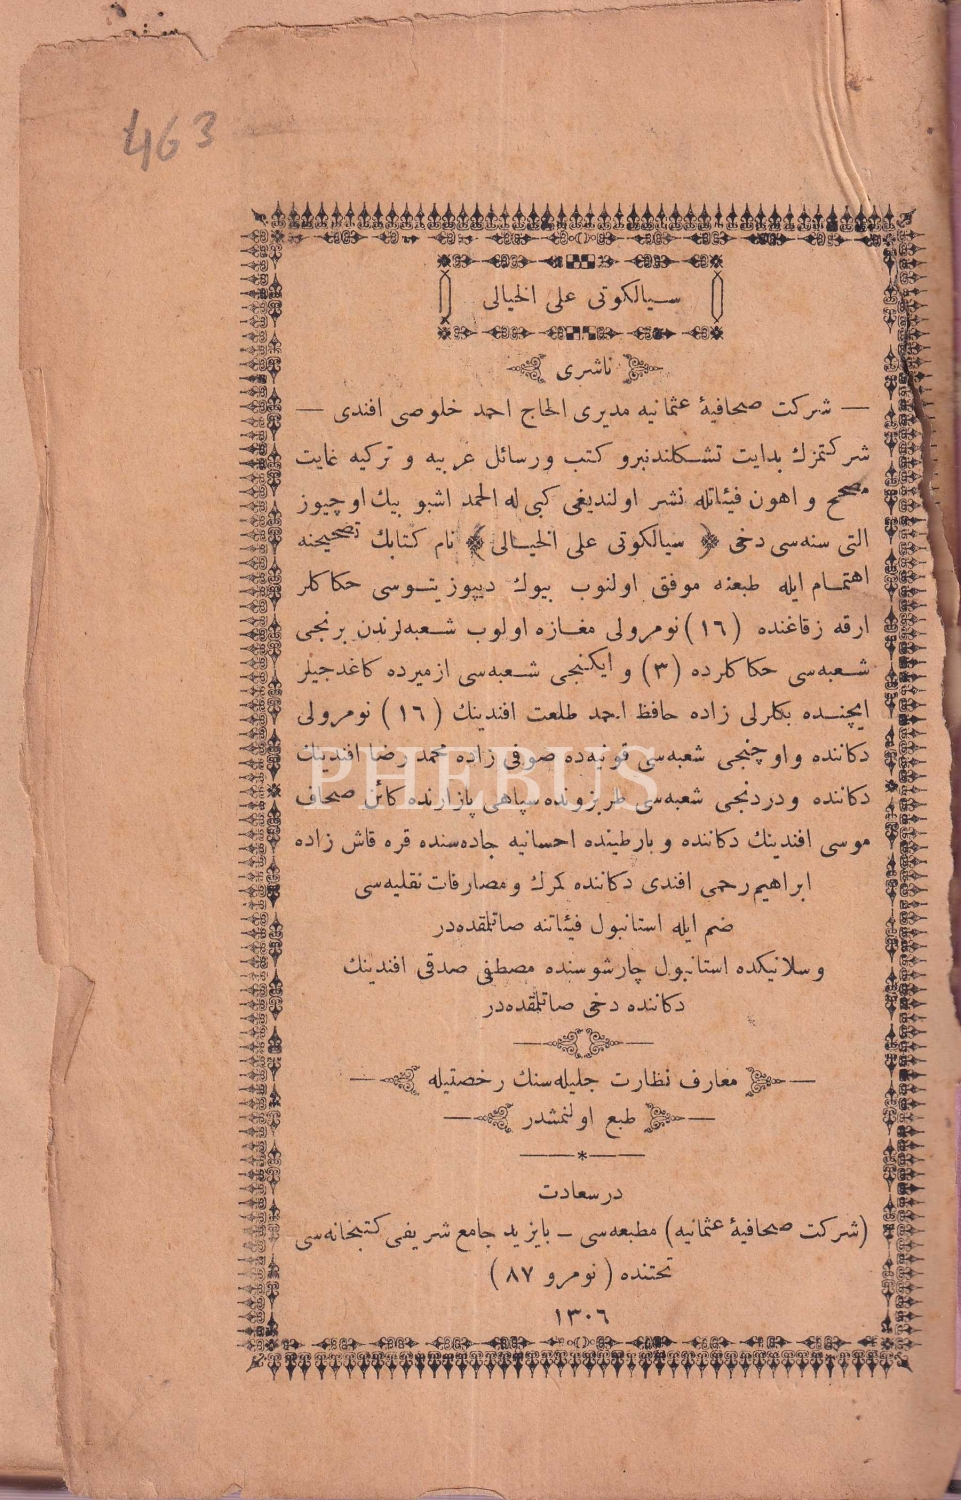 463
سيالكوتى على الخيالى
ناشرى
— شركت صحافيۀ عثمانيه مديرى الحاج احمد خلوصى افندى —
شركتمزك بدايت تشكلندنبرو كتب ورسائل عربيه و تركيه غايت
مصحح و اهون فيئاتله نشر اولنديغى كبى له الحمد اشبو بيك اوچيوز
التى سنه‌سى دخى ﴿ سيالكوتى على الخيالى ﴾ نام كتابك تصحيحنه
اهتمام ايله طبعنه موفق اولنوب بيوك ديپوزيتوسى حكاكلر
ارقه زقاغنده (١٦) نومرولى مغازه اولوب شعبه‌لرندن برنجى
شعبه‌سى حكاكلرده (٣) و ايكنجى شعبه‌سى ازميرده كاغدجيلر
ايچنده بكلرلى زاده حافظ احمد طلعت افندينك (١٦) نومرولى
دكاننده واوچنجى شعبه‌سى قونيه‌ده صوفى زاده محمد رضا افندينك
دكاننده ودردنجى شعبه‌سى طربزونده سپاهى پازارنده كائن صحاف
موسى افندينك دكاننده و بارطينده احسانيه جاده‌سنده قره قاش زاده
ابراهيم رحمى افندى دكاننده كمرك ومصارفات نقليه‌سى
ضم ايله استانبول فيئاتنه صاتلقده‌در
وسلانيكده استانبول چارشوسنده مصطفى صدقى افندينك
دكاننده دخى صاتلقده‌در
معارف نظارت جليله‌سنك رخصتيله
طبع اولنمشدر
*
درسعادت
(شركت صحافيۀ عثمانيه) مطبعه‌سى — بايزيد جامع شريفى كتبخانه‌سى
تحتنده (نومرو ٨٧)
١٣٠٦
PHEBUS